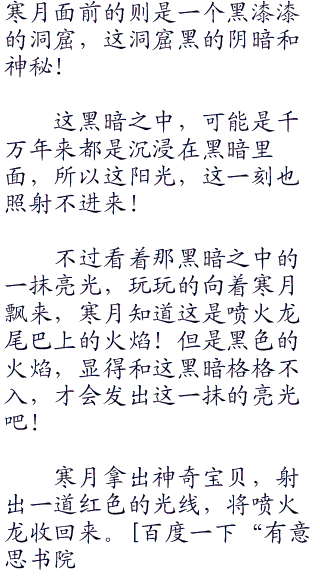 寒月面前的则是一个黑漆漆
的洞窟，这洞窟黑的阴暗和
神秘！
这黑暗之中，可能是千
万年来都是沉浸在黑暗里
面，所以这阳光，这一刻也
照射不进来！
不过看着那黑暗之中的
一抹亮光，玩玩的向着寒月
飘来，寒月知道这是喷火龙
尾巴上的火焰！但是黑色的
火焰，显得和这黑暗格格不
入，才会发出这一抹的亮光
吧！
寒月拿出神奇宝贝，射
出一道红色的光线，将喷火
龙收回来。[百度一下“有意
思书院